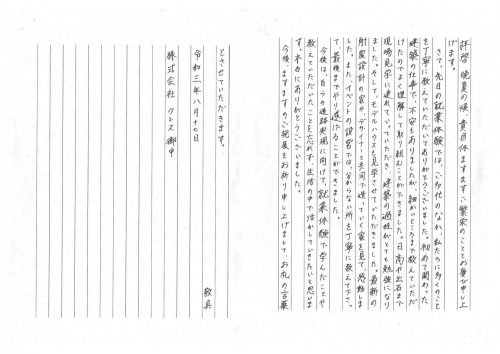 拝啓 晩夏の候 貴団体ますますご繁栄のこととお慶び申し上
げます。
さて、先日の就業体験では、ご多忙のなか、私たちに多くのこと
を丁寧に教えていただいてありがとうございました。初めて関わった
建築の仕事で、不安もありましたが、細かいところまで教えていただ
けたのでよく理解して取り組むことができました。日高や出石まで
現場見学に連れていっていただき、建築の過程がとても勉強になり
ました。そして、モデルハウスも見学させていただきました。最新の
耐震設計の家や、デザイナーと共同で造っていく家を見て、感動しま
した。また、イベントの設営では、分からない所を丁寧に教えて下さっ
て、最後までやり遂げることができました。
今後は自らの進路実現に向けて、就業体験で学んだことや
教えていただいたことを忘れず、生活の中で活かしていきたいと思いま
す。本当にありがとうございました。
今後、ますますのご発展をお祈り申し上げまして、お礼の言葉
とさせていただきます。
敬具
令和三年八月十七日
株式会社 クレス御中